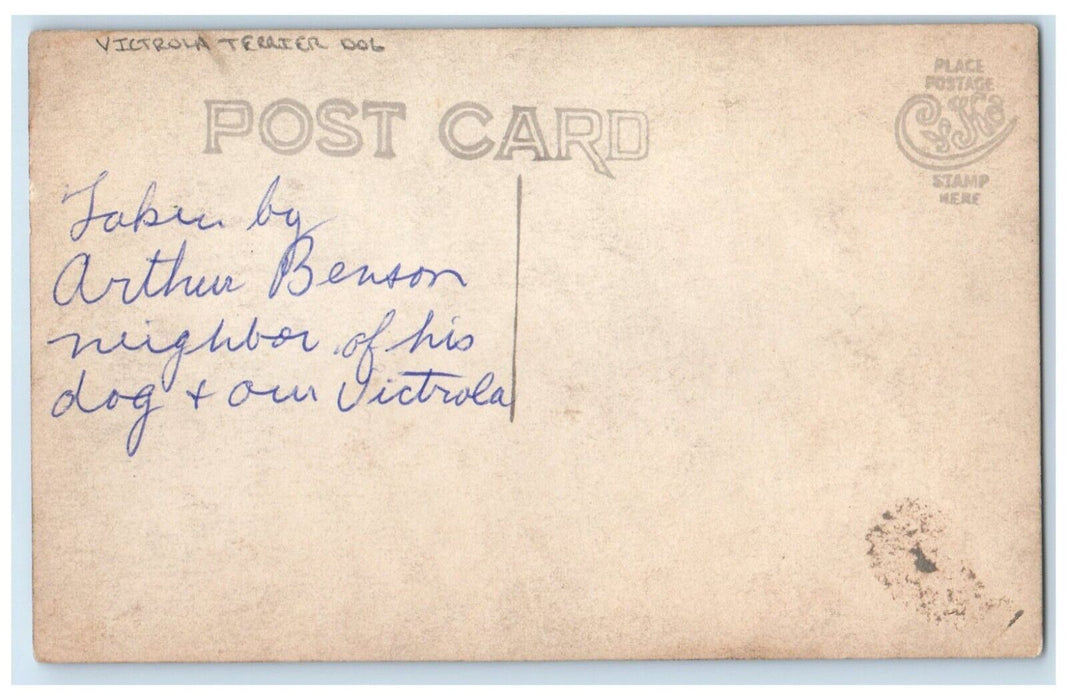 VICTROLA TERRIER DOG
POST CARD
PLACE
POSTAGE
STAMP
HERE
Taken by
Arthur Benson
neighbor of his
dog + our Victrola